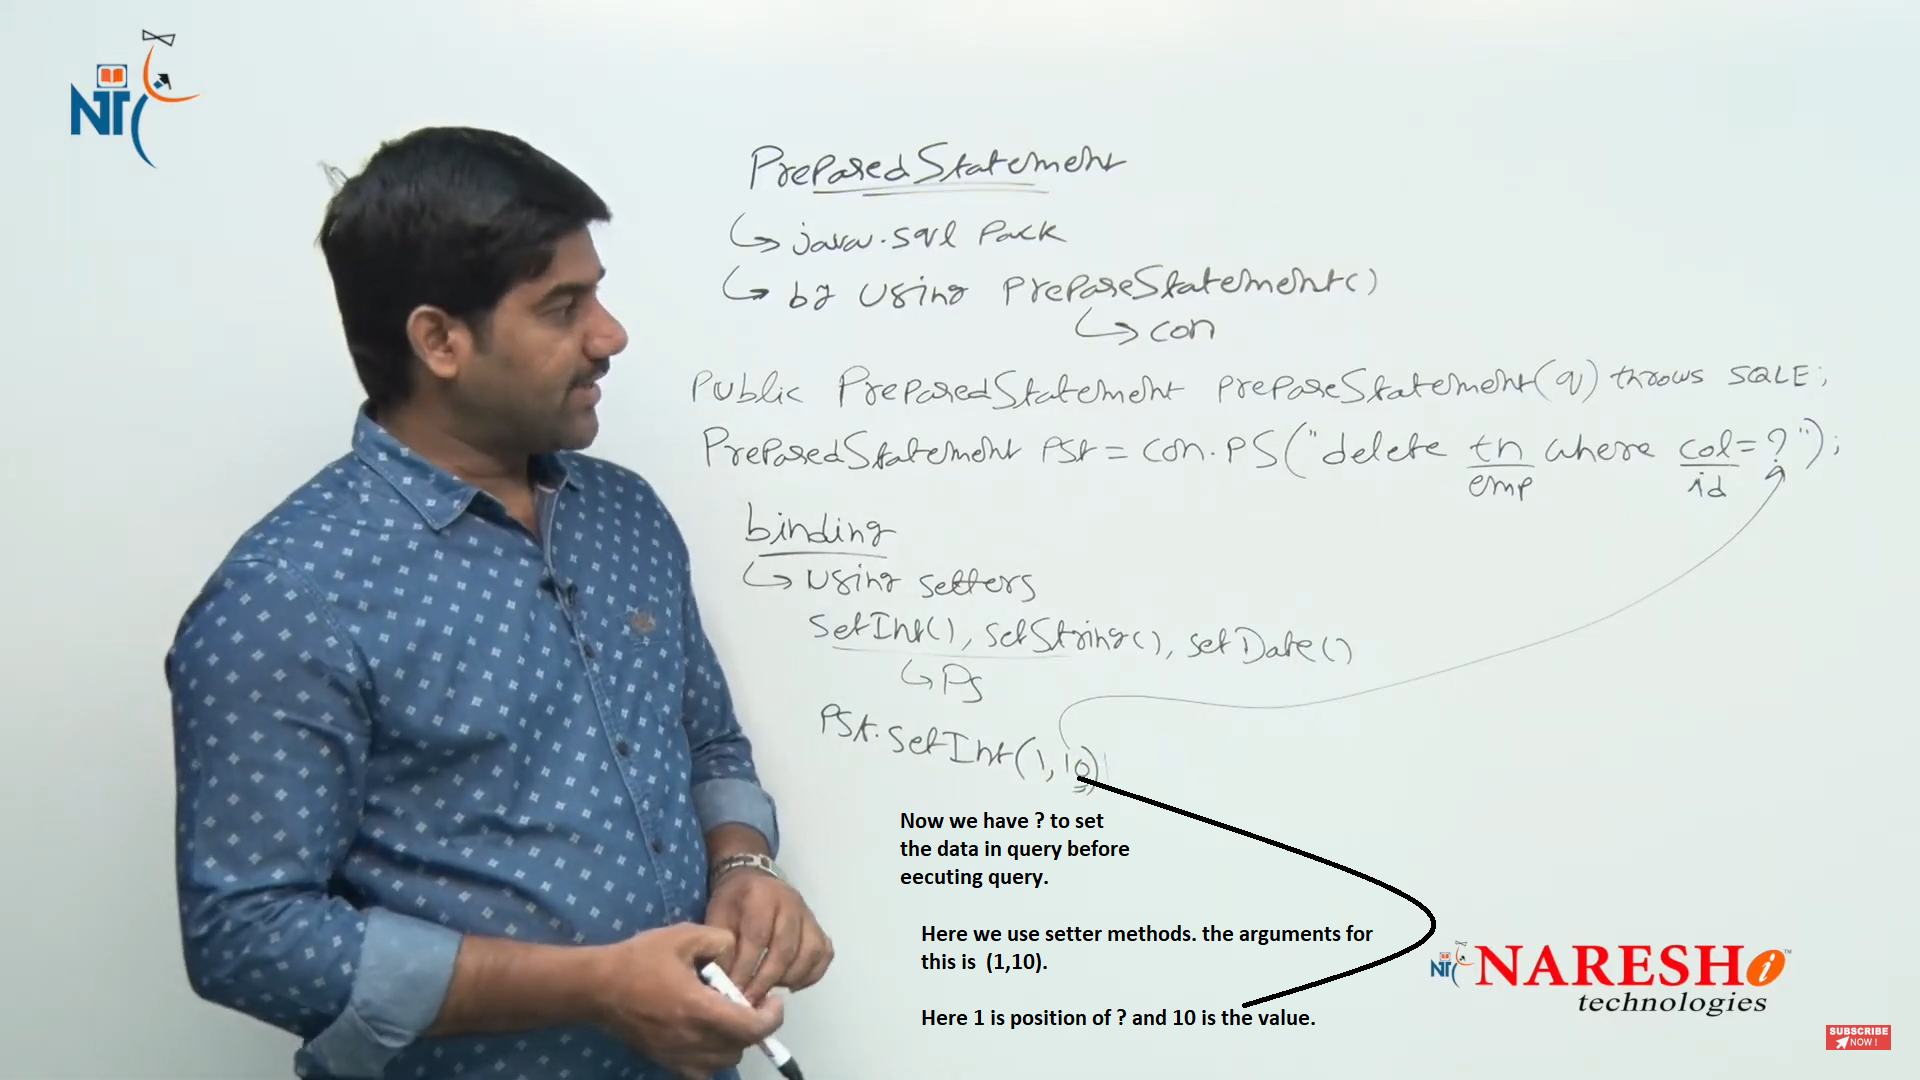 NT
PreparedStatement
↳ java.sql Pack
↳ by using PrepareStatement()
↳ con
Public PreparedStatement prepareStatement(q) throws SQLE;
PreparedStatement PSt = con.PS("delete tn where col=?");
emp id
binding
↳ using setters
setInt(), setString(), setDate()
↳ Ps
PSt.setInt(1,10)
Now we have ? to set
the data in query before
eecuting query.
Here we use setter methods. the arguments for
this is (1,10).
Here 1 is position of ? and 10 is the value.
NT NARESH i ™
technologies
SUBSCRIBE
NOW !